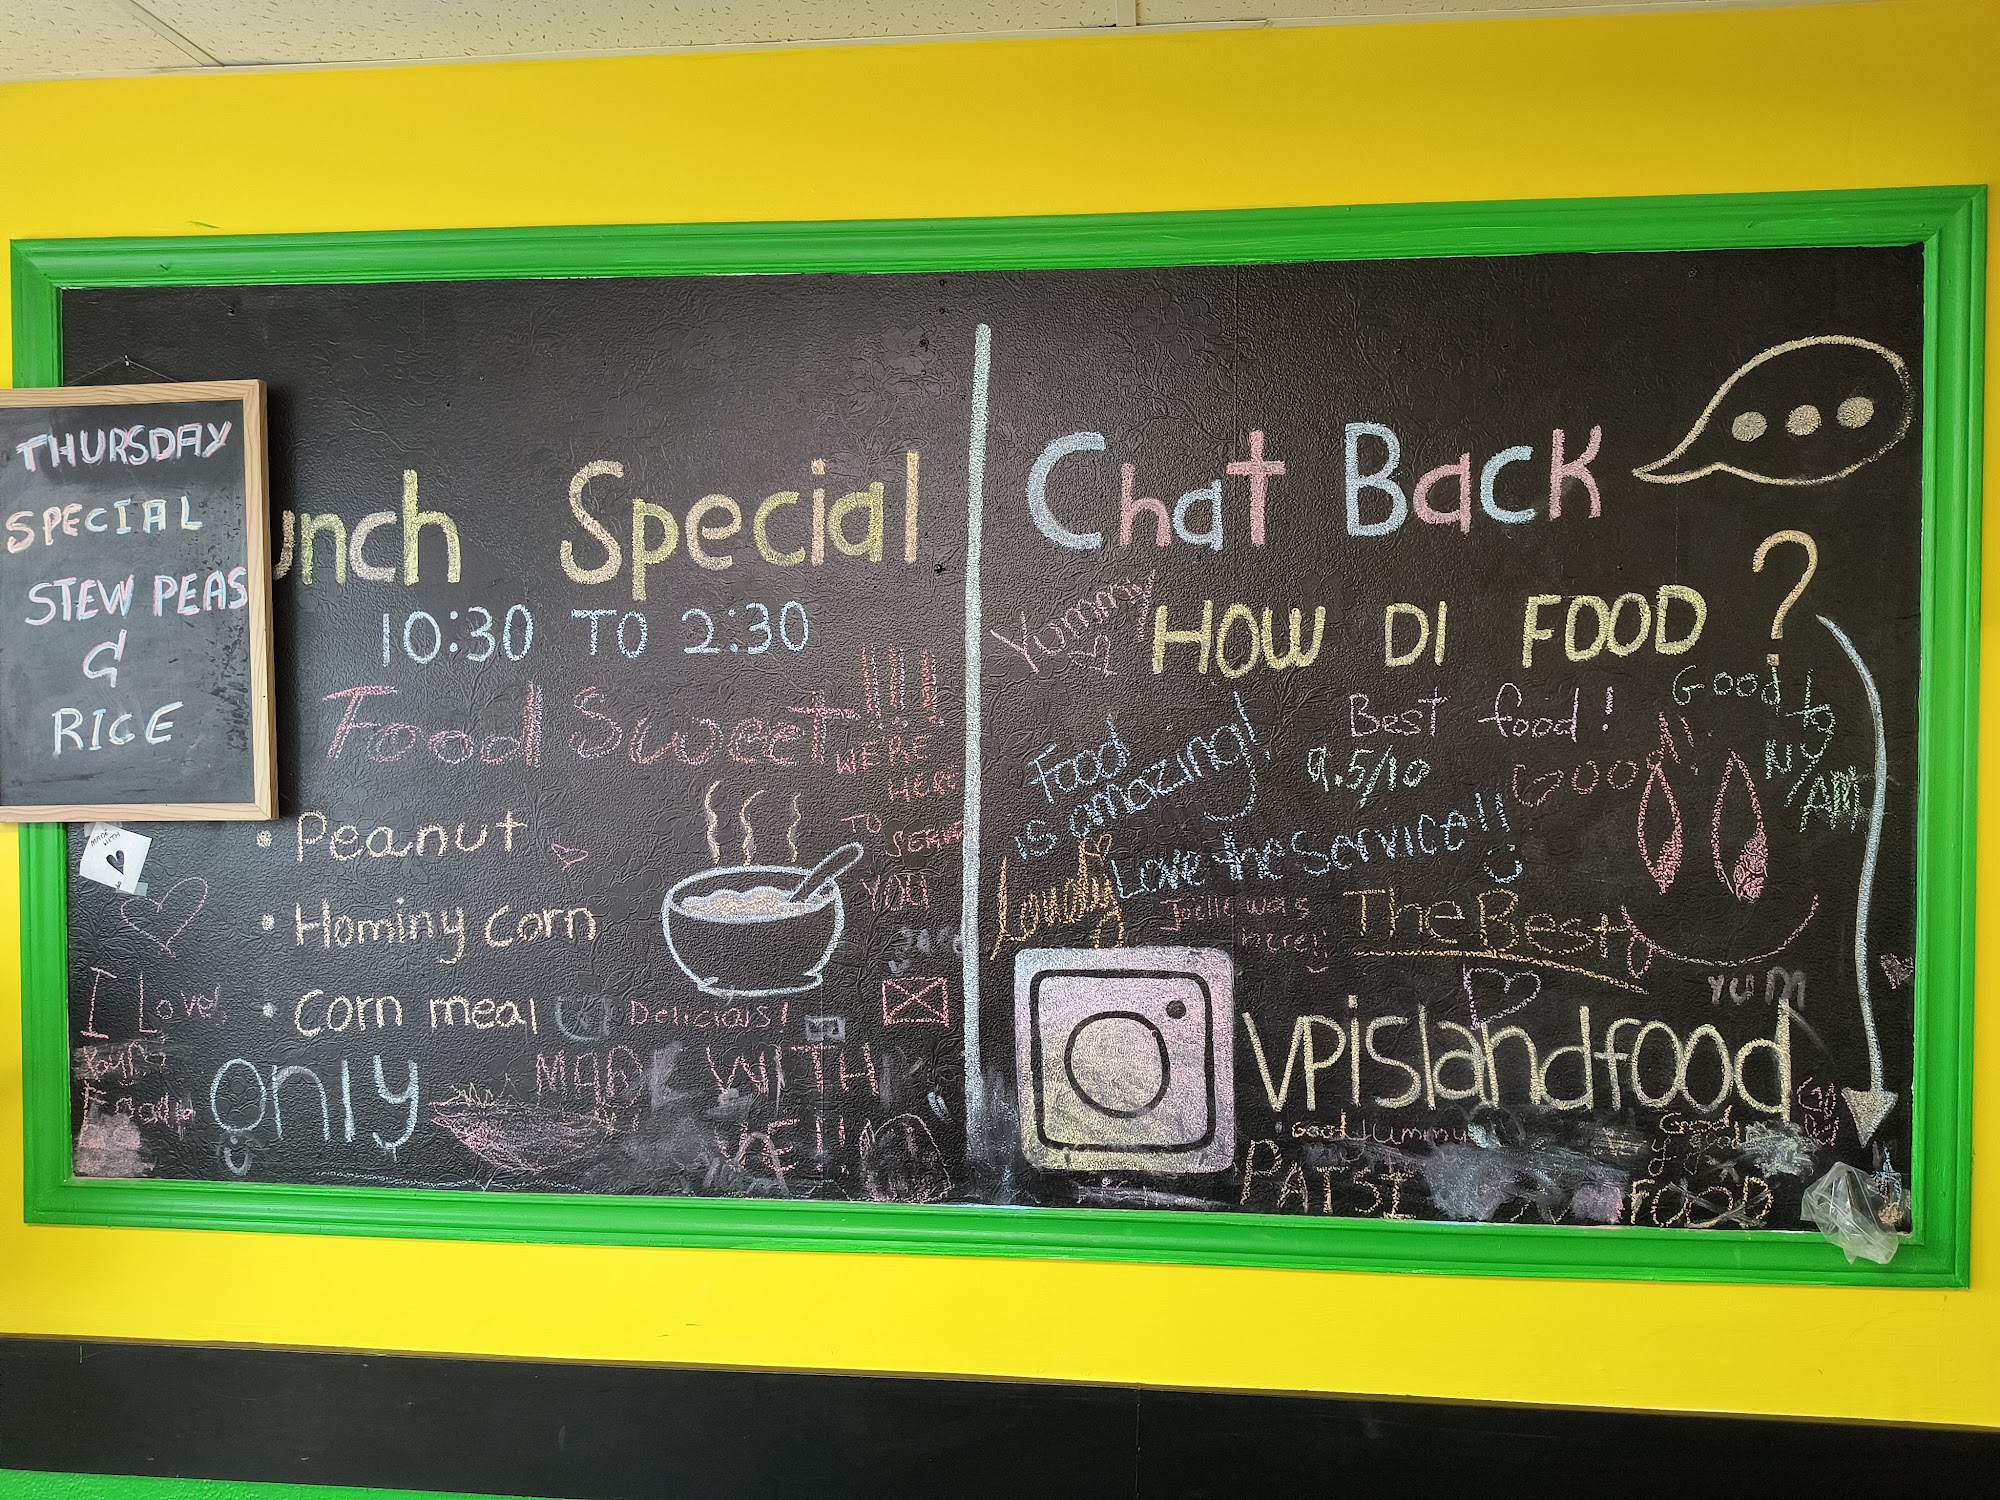 THURSDAY
SPECIAL
STEW PEAS
&
RICE
unch Special
10:30 TO 2:30
Food Sweet!!!!
WE'RE
HERE
TO
SERVE
YOU
• Peanut
• Hominy corn
• corn meal
only
MADE
WITH
I Love
Your
Food
Delicials!
MADE WITH
Chat Back
HOW DI FOOD ?
Yummy
Best food!
9.5/10
Good
Good
to
Ny
AM
Food
is amazing!
Love the Service!!
Lovely
Joelle was
here!!
The Best
YUM
VPislandfood
Good Yummy
Good
PATSI
FOOD